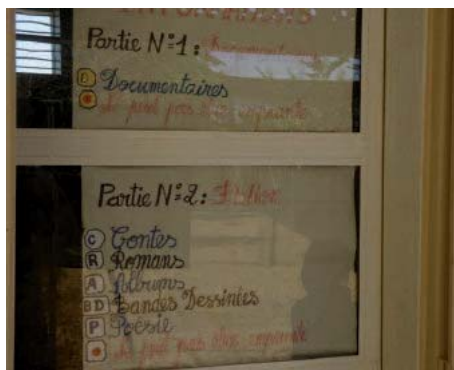 Partie N°1:
D Documentaires
peut pas être emprunté
Partie N°2:
C Contes
R Romans
A Albums
BD Bandes Dessinées
P Poésie
peut pas être emprunté